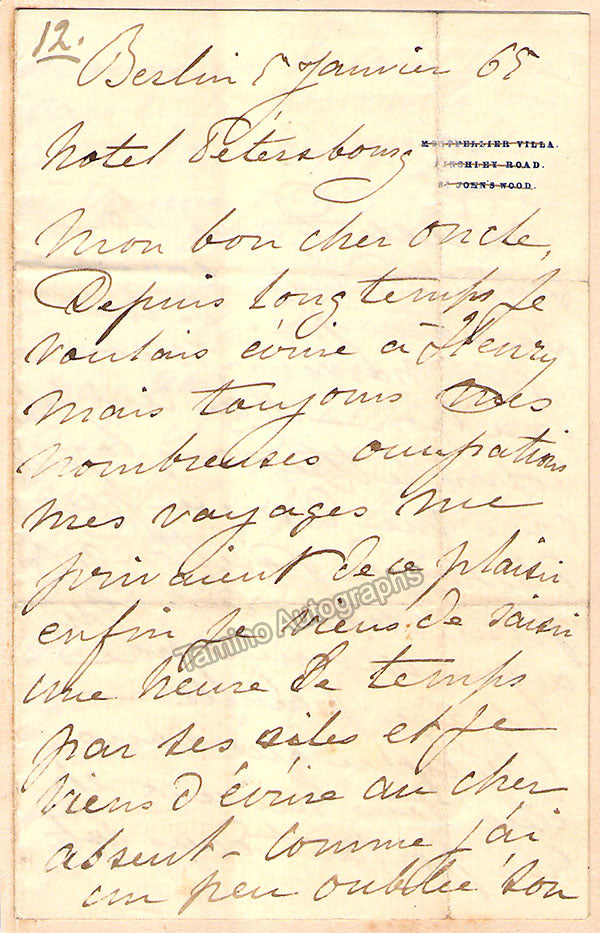 12.
Berlin 5 Janvier 65
Hotel Pétersbourg
MONTPELLIER VILLA.
FINCHLEY ROAD.
ST JOHN'S WOOD.
Mon bon cher oncle,
Depuis longtemps je
voulais écrire à Henry
mais toujours mes
nombreuses occupations
mes voyages me
privaient de ce plaisir
enfin je viens de saisir
une heure de temps
par ses ailes et je
viens d'écrire au cher
absent - Comme j'ai
un peu oublié son
Tamino Autographs